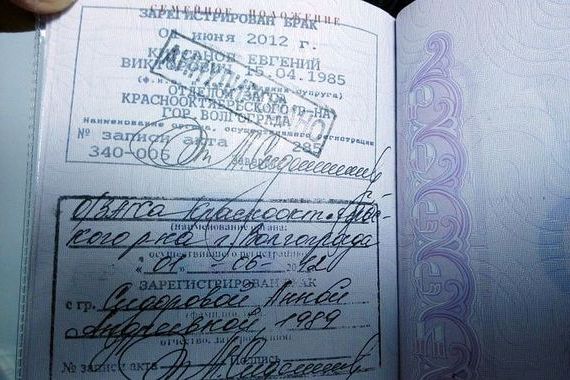 СЕМЕЙНОЕ ПОЛОЖЕНИЕ
ЗАРЕГИСТРИРОВАН БРАК
01 июня 2012 г.
ЕВГЕНИЙ
15.04.1985
ОТДЕЛОМ ЗАГСА
КРАСНООКТЯБРЬСКОГО Р-НА
ГОР. ВОЛГОГРАДА
Наименование органа, осуществившего регистрацию
№ записи акта 285
340-006
О/ЗАГСа Краснооктябрь-
кого р-на г. Волгограда
(наименование органа,
осуществившего регистрацию)
"01" - 06 - 2012
ЗАРЕГИСТРИРОВАН БРАК
с гр. Сидоровой Анной
Андреевной, 1989
отчество, дата рожд.
№ записи акта Подпись